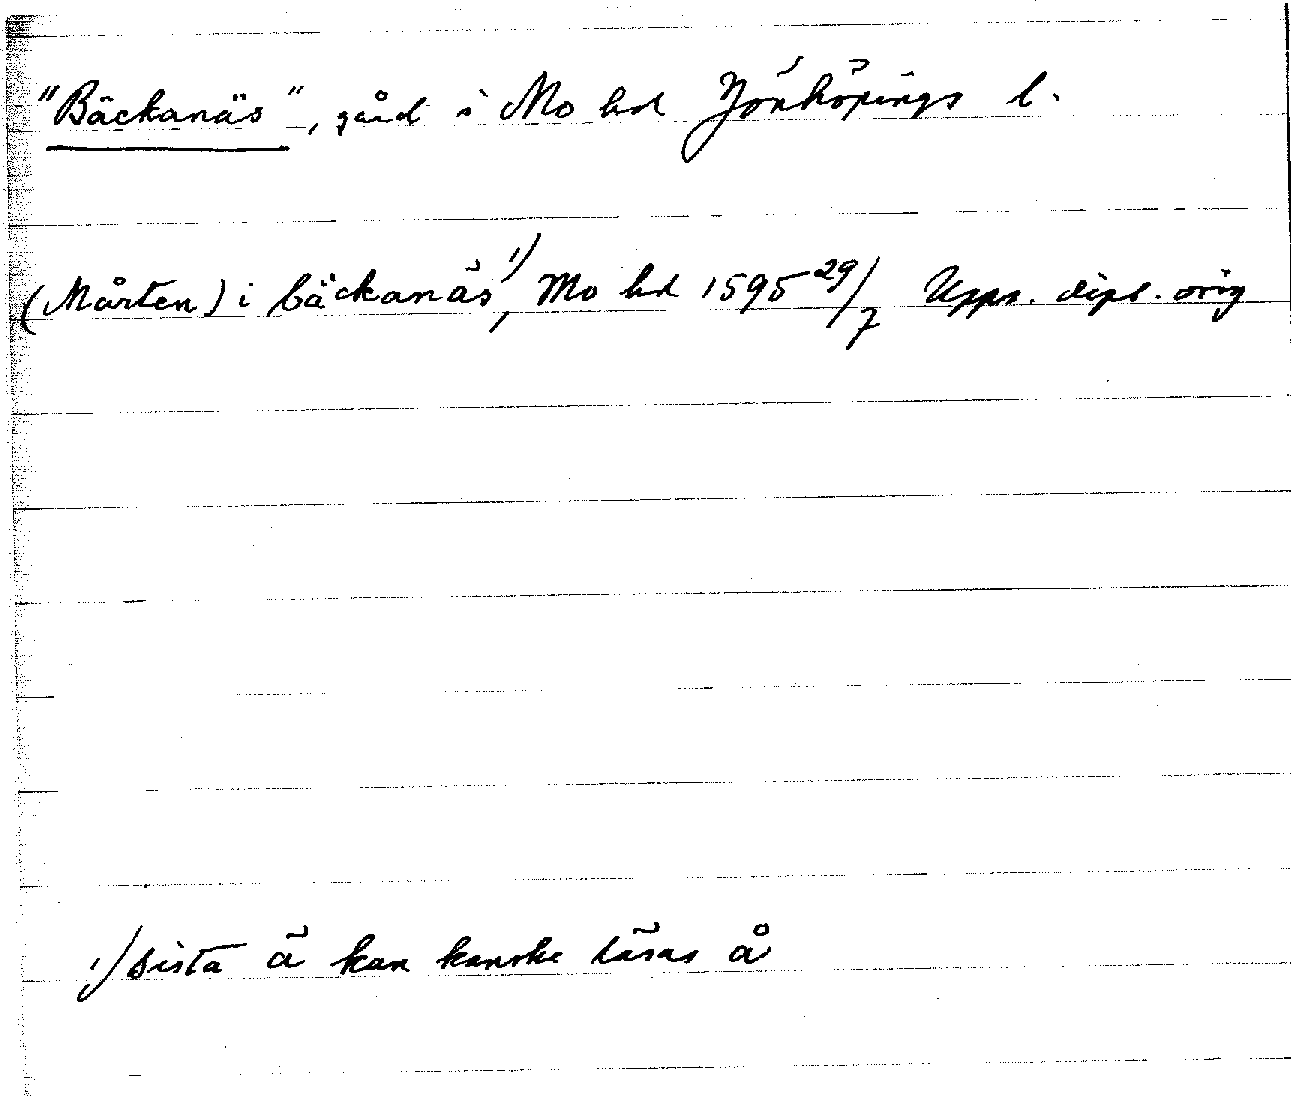 "Bäckanäs", gård i Mo hd Jönköpings l.
(Mårten) i bäckanäs¹⁾, Mo hd 1595 29/7 Upps. dipl. orig
1) sista ä kan kanske läsas å